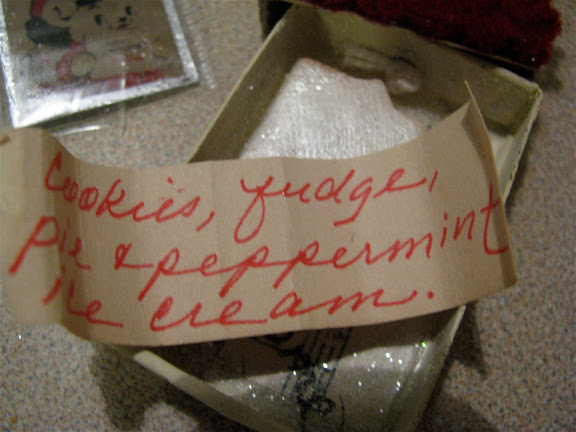 Cookies, fudge,
pie & peppermint
ice cream.